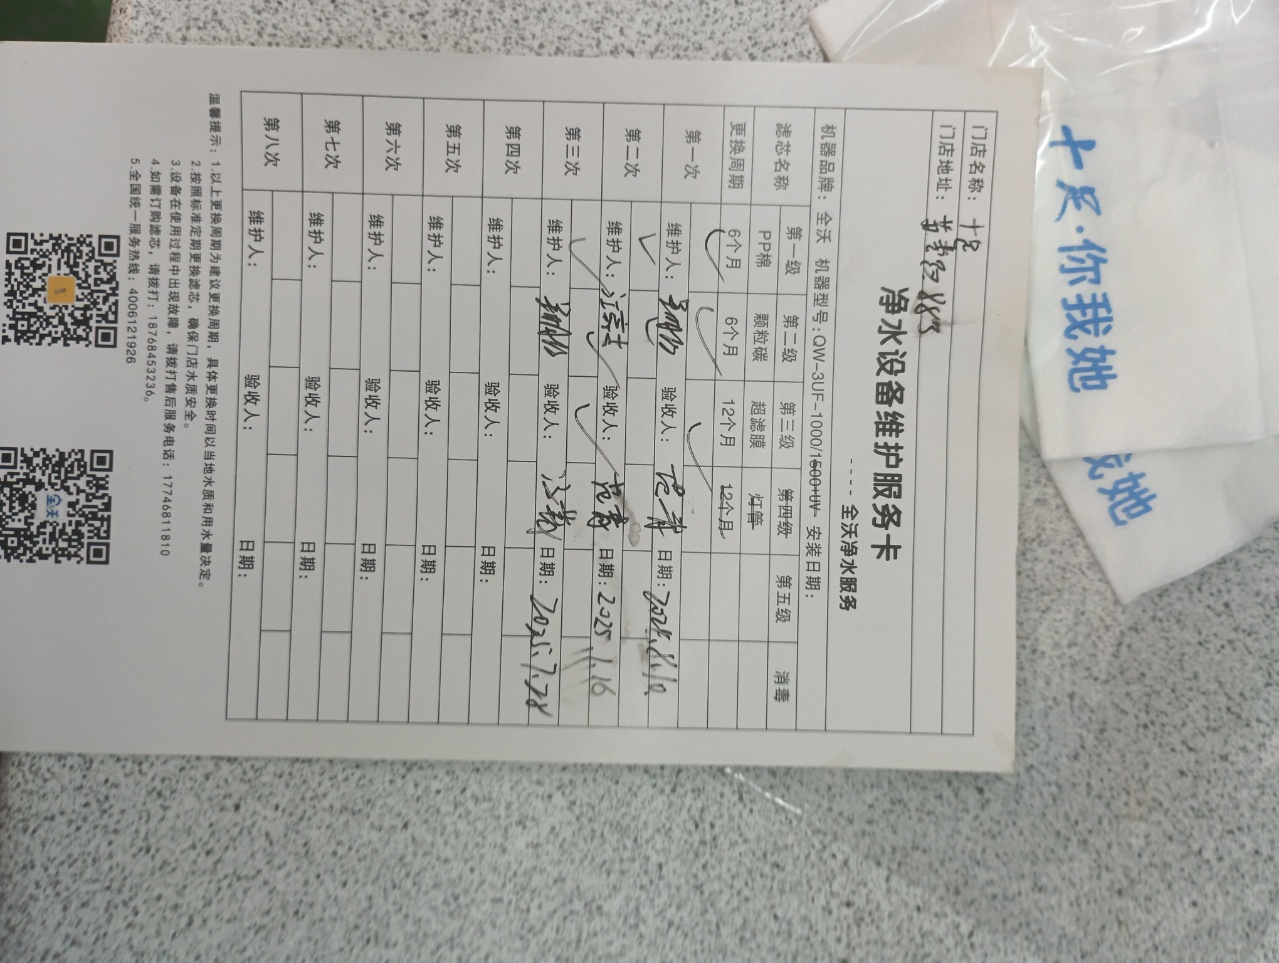 净水设备维护服务卡
---- 全沃净水服务
门店名称: 十足
门店地址:
机器品牌: 全沃 机器型号:QW-3UF-1000/1500+UV 安装日期:
滤芯名称 第一级 第二级 第三级 第四级 第五级 消毒
PP棉 颗粒碳 超滤膜 灯管
更换周期 6个月 6个月 12个月 12个月
第一次 ✓ ✓ ✓
维护人: 验收人: 日期:
第二次 ✓
维护人: 验收人: 日期: 2025.1.16
第三次 ✓ ✓ ✓
维护人: 验收人: 日期: 2025.7.28
第四次
维护人: 验收人: 日期:
第五次
维护人: 验收人: 日期:
第六次
维护人: 验收人: 日期:
第七次
维护人: 验收人: 日期:
第八次
维护人: 验收人: 日期:
温馨提示: 1.以上更换周期为建议更换周期，具体更换时间以当地水质和用水量决定。
2.按照标准定期更换滤芯，确保门店水质安全。
3.设备在使用过程中出现故障，请拨打售后服务电话: 17746811810
4.如需订购滤芯，请拨打: 18768453236。
5.全国统一服务热线: 4006121926
全沃
十足·你我她
我她